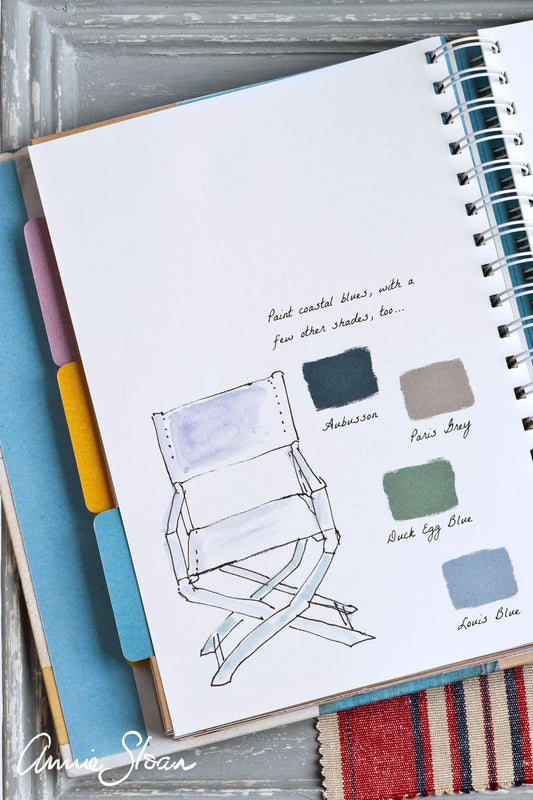 Paint coastal blues, with a
few other shades, too...
Aubusson
Paris Grey
Duck Egg Blue
Louis Blue
Annie Sloan